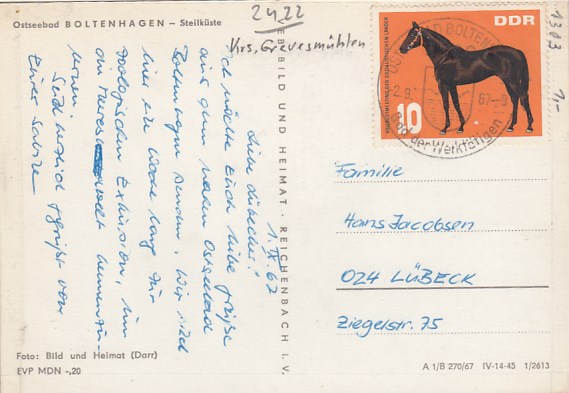 Ostseebad BOLTENHAGEN – Steilküste
2422
Krs. Grevesmühlen
1303
1,-
DDR
10
OSTSEEBAD BOLTENHAGEN
-2.9.67-9
Bad der Werktätigen
VEB BILD UND HEIMAT · REICHENBACH I. V.
1. IX. 67
Liebe Lübecker!
Ich möchte Euch liebe Grüße
aus dem Ostseebad
Boltenhagen senden. Wir sind
hier eine Woche lang zur
zoologischen Exkursion, um
die Meereswelt kennenzu-
lernen.
Seid herzlich gegrüßt von
Eurer Sabine
Familie
Hans Jacobsen
024 LÜBECK
Ziegelstr. 75
Foto: Bild und Heimat (Darr)
EVP MDN -,20
A 1/B 270/67 IV-14-45 1/2613